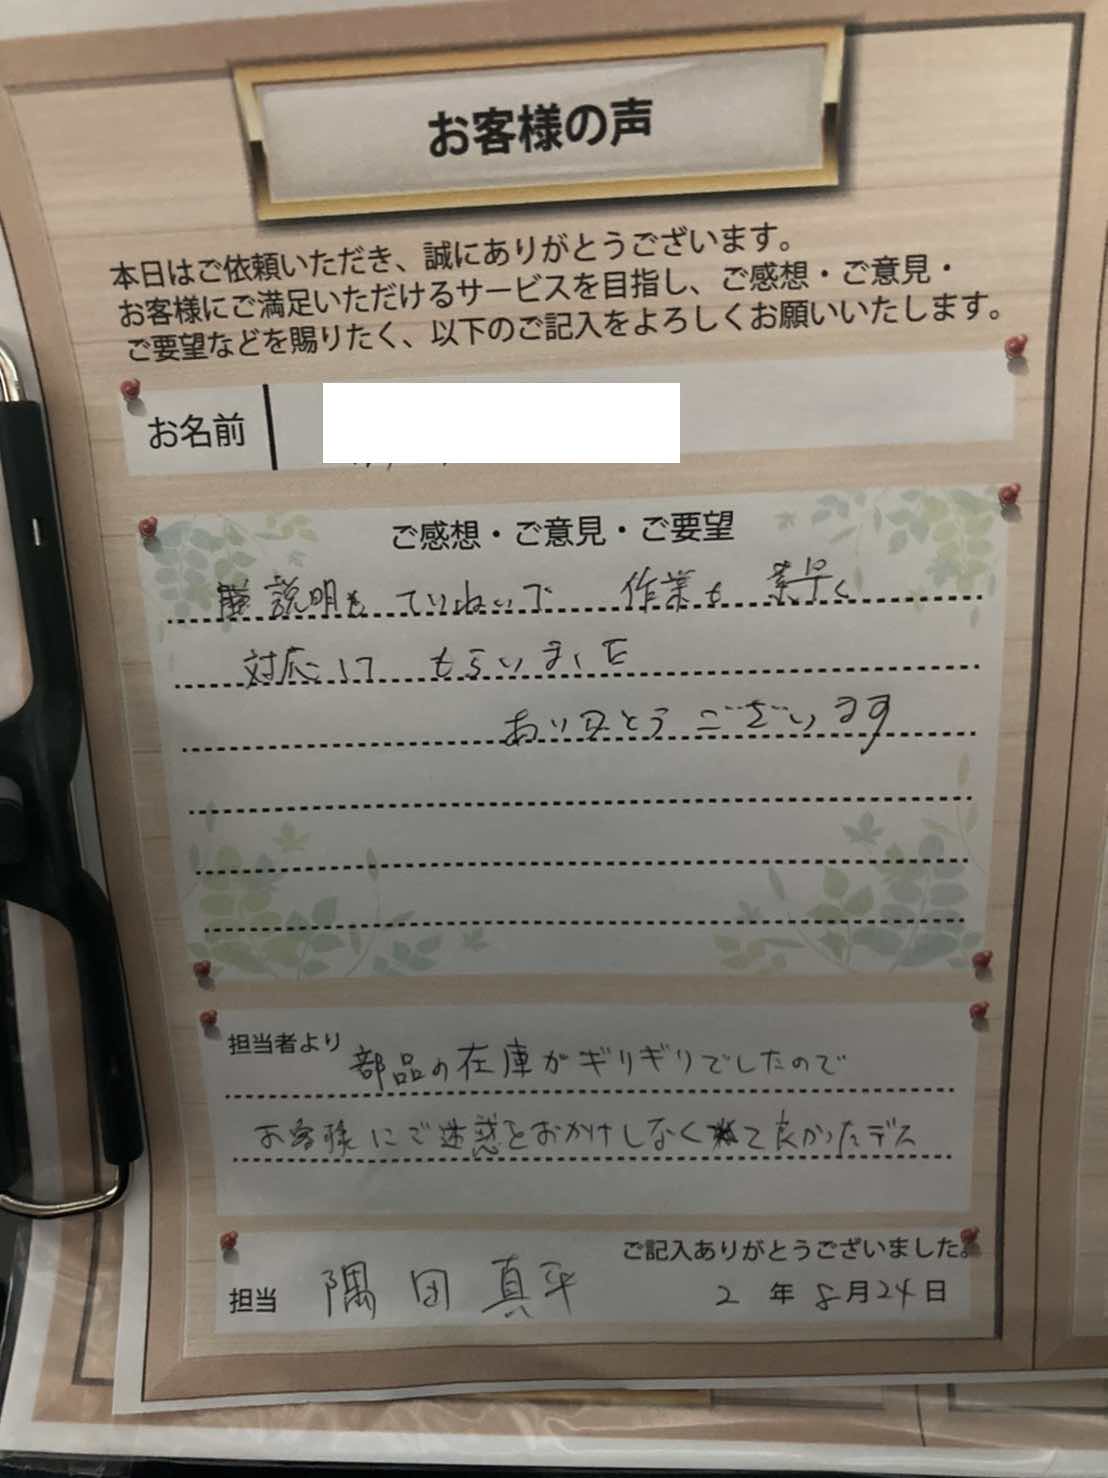 お客様の声
本日はご依頼いただき、誠にありがとうございます。
お客様にご満足いただけるサービスを目指し、ご感想・ご意見・
ご要望などを賜りたく、以下のご記入をよろしくお願いいたします。
お名前
ご感想・ご意見・ご要望
説明も ていねいで 作業も 素早く
対応して もらいました
ありがとうございます
担当者より 部品の在庫がギリギリでしたので
お客様にご迷惑をおかけしなくて良かったデス
ご記入ありがとうございました。
担当 隅田 真平 2 年 8 月 24 日